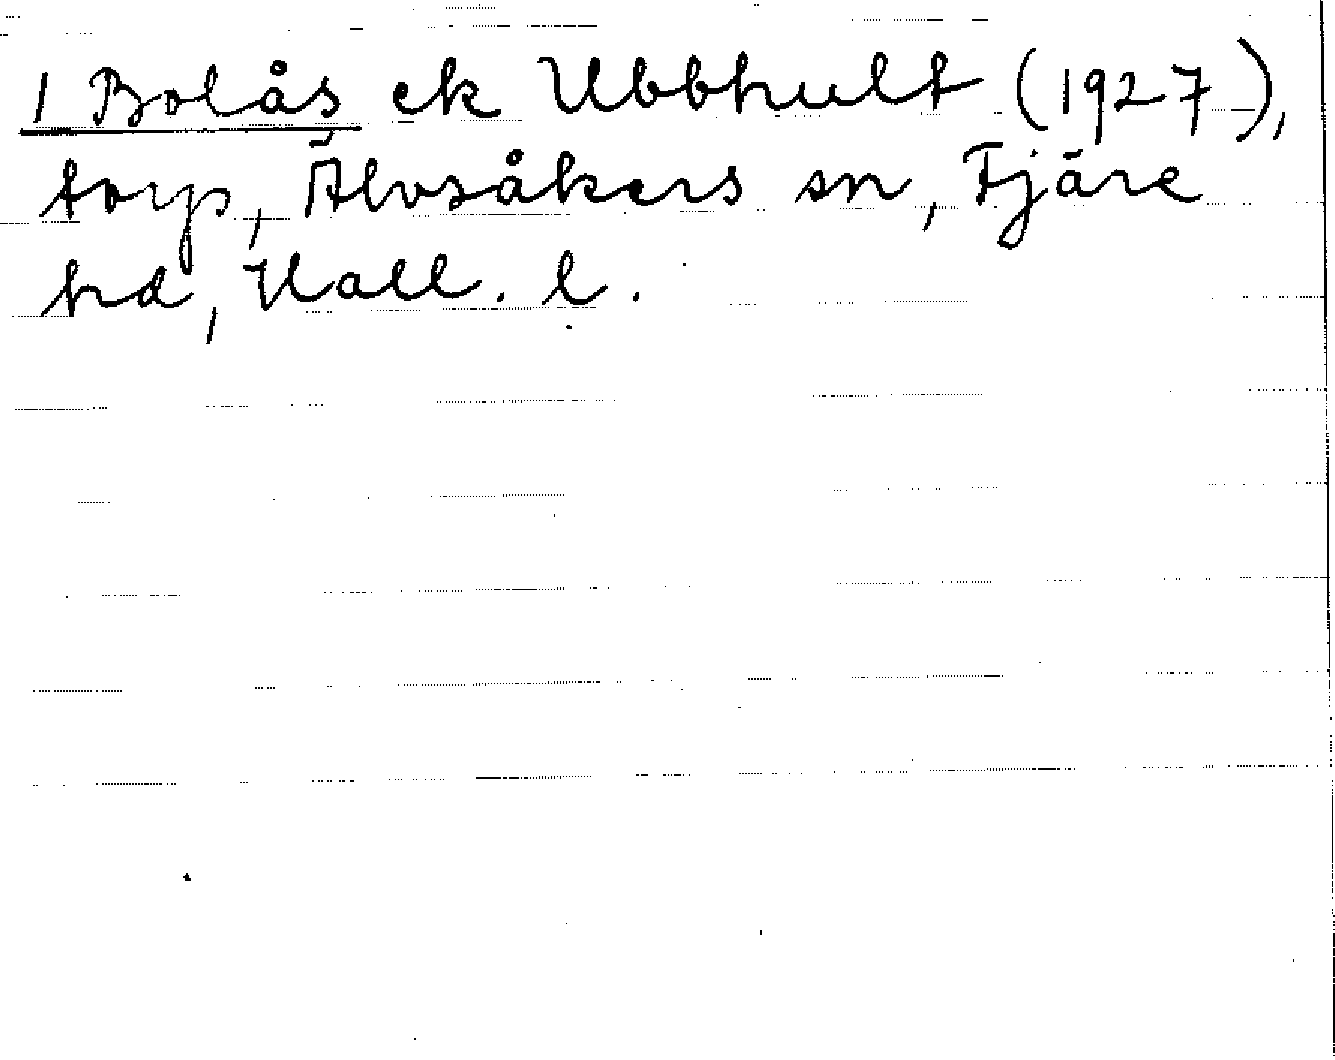 1 Bolås ek Ubbhult (1927),
torp, Älvsåkers sn, Fjäre
hd, Hall. l.